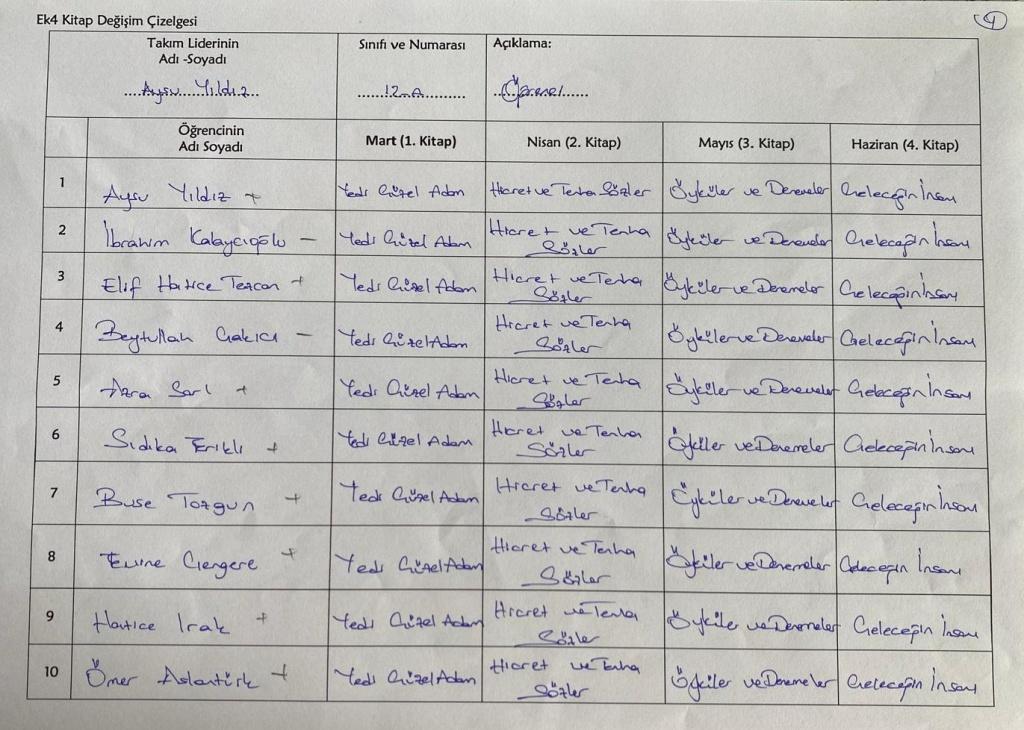 Ek4 Kitap Değişim Çizelgesi
4
Takım Liderinin
Adı -Soyadı
....Aysu....Yıldız...
Sınıfı ve Numarası
.......12-A..........
Açıklama:
Öğrencinin
Adı Soyadı
Mart (1. Kitap)
Nisan (2. Kitap)
Mayıs (3. Kitap)
Haziran (4. Kitap)
1 Aysu Yıldız + Yedi Güzel Adam Hicret ve Tenha Sözler Öyküler ve Denemeler Geleceğin İnsanı
2 İbrahim Kalaycıoğlu — Yedi Güzel Adam Hicret ve Tenha Sözler Öyküler ve Denemeler Geleceğin İnsanı
3 Elif Hatice Tezcan + Yedi Güzel Adam Hicret ve Tenha Sözler Öyküler ve Denemeler Geleceğin İnsanı
4 Beytullah Çakıcı — Yedi Güzel Adam Hicret ve Tenha Sözler Öyküler ve Denemeler Geleceğin İnsanı
5 Azra Sarı + Yedi Güzel Adam Hicret ve Tenha Sözler Öyküler ve Denemeler Geleceğin İnsanı
6 Sıdıka Erikli + Yedi Güzel Adam Hicret ve Tenha Sözler Öyküler ve Denemeler Geleceğin İnsanı
7 Buse Tozgun + Yedi Güzel Adam Hicret ve Tenha Sözler Öyküler ve Denemeler Geleceğin İnsanı
8 Emine + Yedi Güzel Adam Hicret ve Tenha Sözler Öyküler ve Denemeler Geleceğin İnsanı
9 Hatice Irak + Yedi Güzel Adam Hicret ve Tenha Sözler Öyküler ve Denemeler Geleceğin İnsanı
10 Ömer Aslantürk + Yedi Güzel Adam Hicret ve Tenha Sözler Öyküler ve Denemeler Geleceğin İnsanı